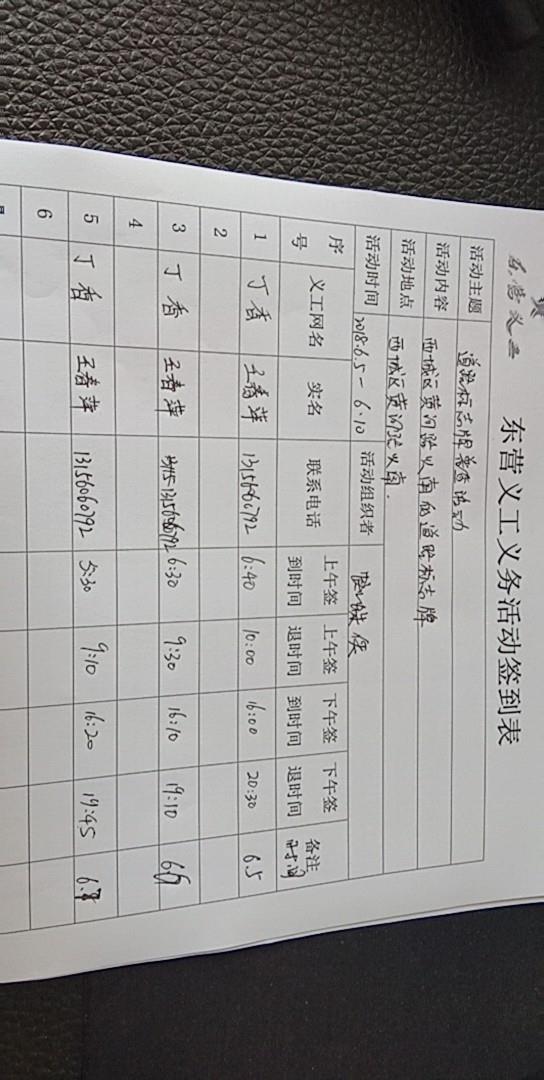 东营义工
东营义工义务活动签到表
活动主题 道路标志牌普查活动
活动内容 西城区黄河路以南的道路标志牌
活动地点 西城区黄河路以南.
活动时间 2018.6.5-6.10 活动组织者 侠
序号 义工网名 实名 联系电话 上午签到时间 上午签退时间 下午签到时间 下午签退时间 备注 时间
1 丁香 王春萍 13156060792 6:40 10:00 16:00 20:30 6.5
2
3 丁香 王春萍 13156060792 6:30 9:30 16:10 19:10
4
5 丁香 王春萍 13156060792 5:30 9:10 16:20 19:45
6